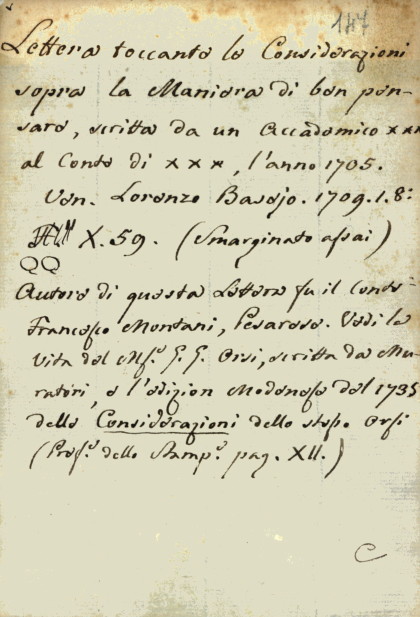 147
Lettera toccante le Considerazioni
sopra la Maniera di ben pen-
sare, scritta da un Accademico xxx
al Conte di xxx, l'anno 1705.
Ven. Lorenzo Basejo. 1709. 1. 8:
X. 59. (Smarginato assai)
QQ
Autore di questa Lettera fu il Conte
Francesco Montani, Pesarese. Vedi la
Vita del Mse. G. G. Orsi, scritta da Mu-
ratori, e l'edizion Modenese del 1735
delle Considerazioni dello stesso Orsi
(Prefe. dello Stampe. pag. XII.)
C